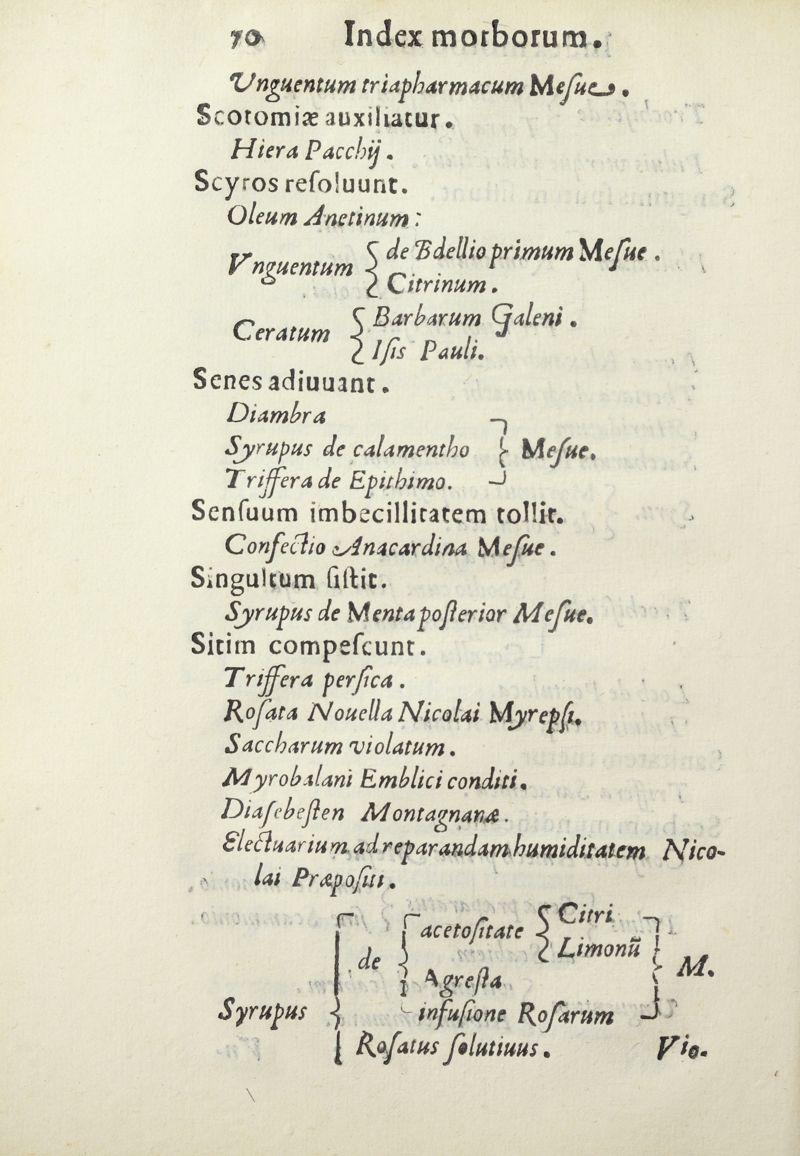 70 Index morborum.
Vnguentum triapharmacum Meſue.
Scotomiæ auxiliatur.
Hiera Pacchij.
Scyros reſoluunt.
Oleum Anetinum:
Vnguentum { de Bdellio primum Meſue.
Citrinum.
Ceratum { Barbarum Galeni.
Iſis Pauli.
Senes adiuuant.
Diambra
Syrupus de calamentho } Meſue.
Triffera de Epithimo.
Senſuum imbecillitatem tollit.
Confectio Anacardina Meſue.
Singultum ſiſtit.
Syrupus de Menta poſterior Meſue.
Sitim compeſcunt.
Triffera perſica.
Roſata Nouella Nicolai Myrepſi.
Saccharum violatum.
Myrobalani Emblici conditi.
Diaſebeſten Montagnanæ.
Electuarium ad reparandam humiditatem Nico-
lai Præpoſiti.
Syrupus { de { acetoſitate { Citri
Limonū
Agreſta } M.
infuſione Roſarum
Roſatus ſolutiuus. Vio-